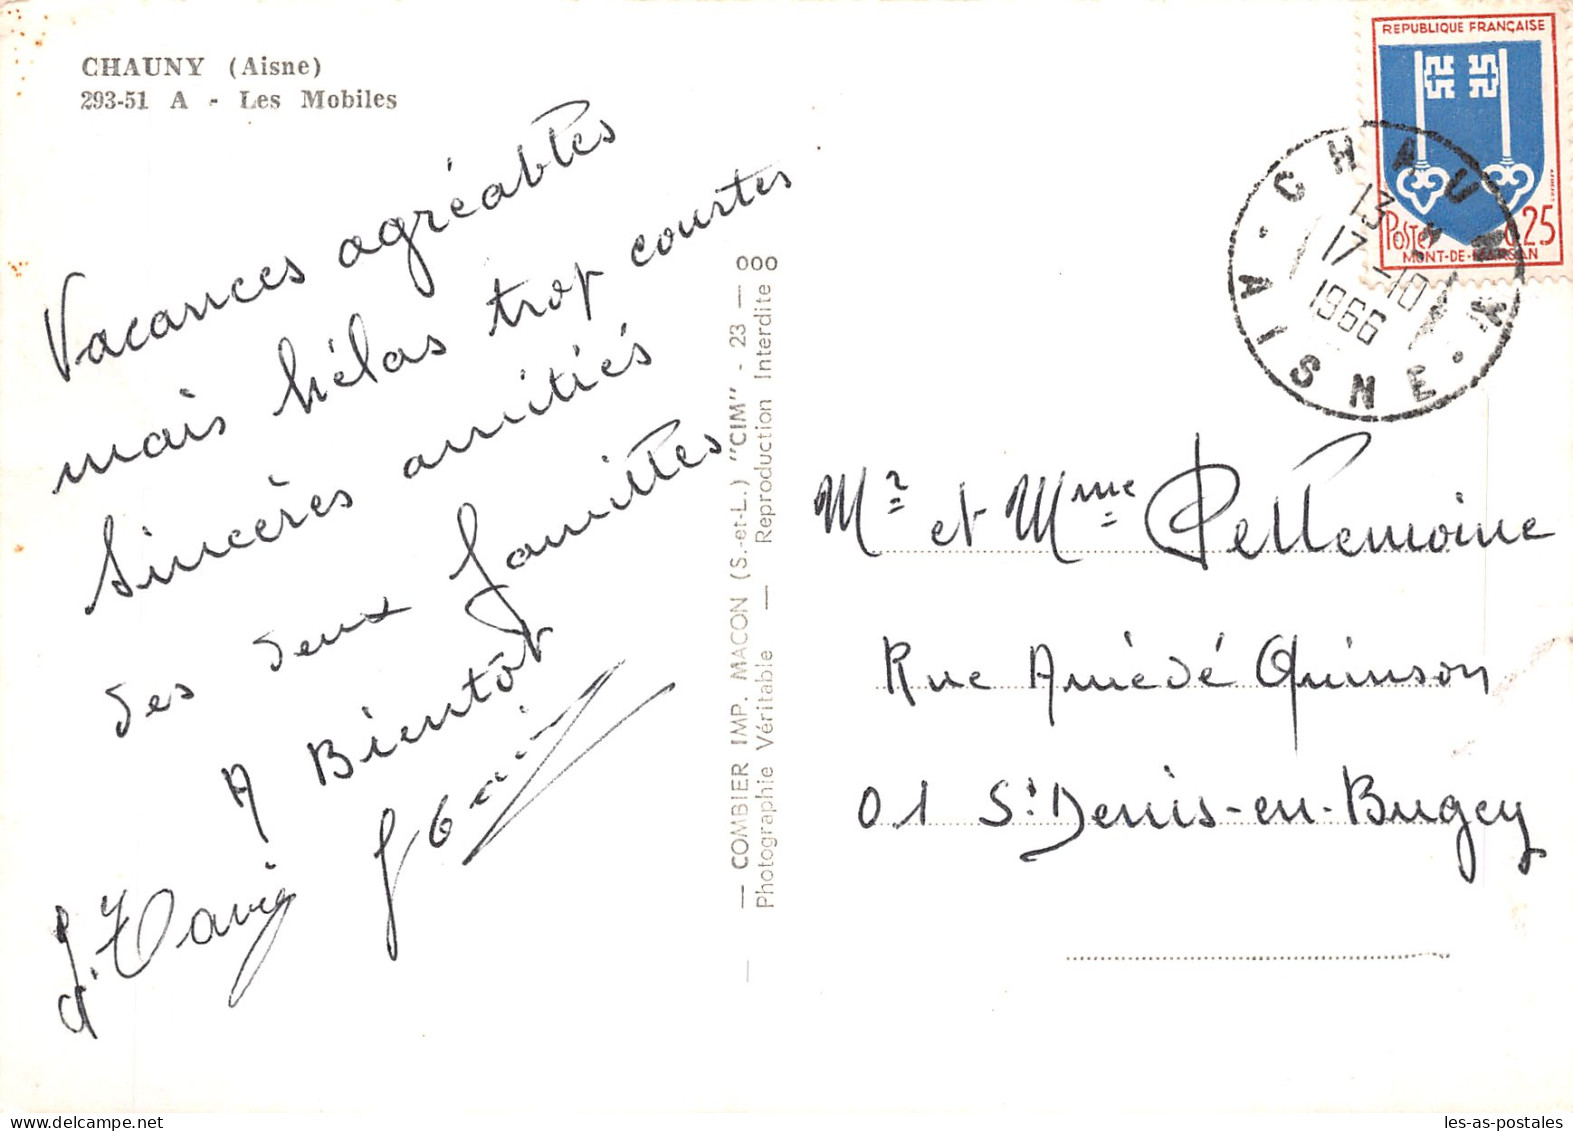 CHAUNY (Aisne)
293-51 A - Les Mobiles
Vacances agréables
mais hélas trop courtes
Sincères amitiés
des deux familles
A Bientôt
— COMBIER IMP. MACON (S.-et-L.) "CIM" - 23 — 000
Photographie Véritable — Reproduction Interdite
REPUBLIQUE FRANÇAISE
Postes 0,25
MONT-DE-MARSAN
CHAUNY
13 H
17 -10
1966
AISNE
Mr et Mme Pellemoine
Rue Amédé Quinson
01 St Denis-en-Bugey
les-as-postales